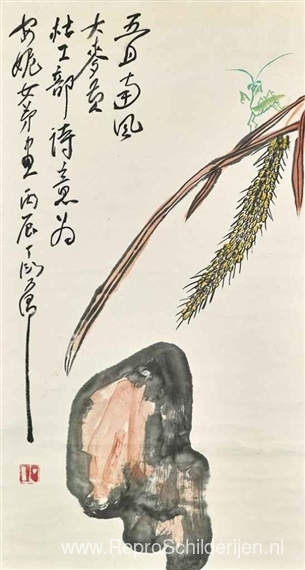 五月南風
大麥黄
杜工部詩意为
安妮女弟畫丙辰丁衍庸
www.ReproSchilderijen.nl